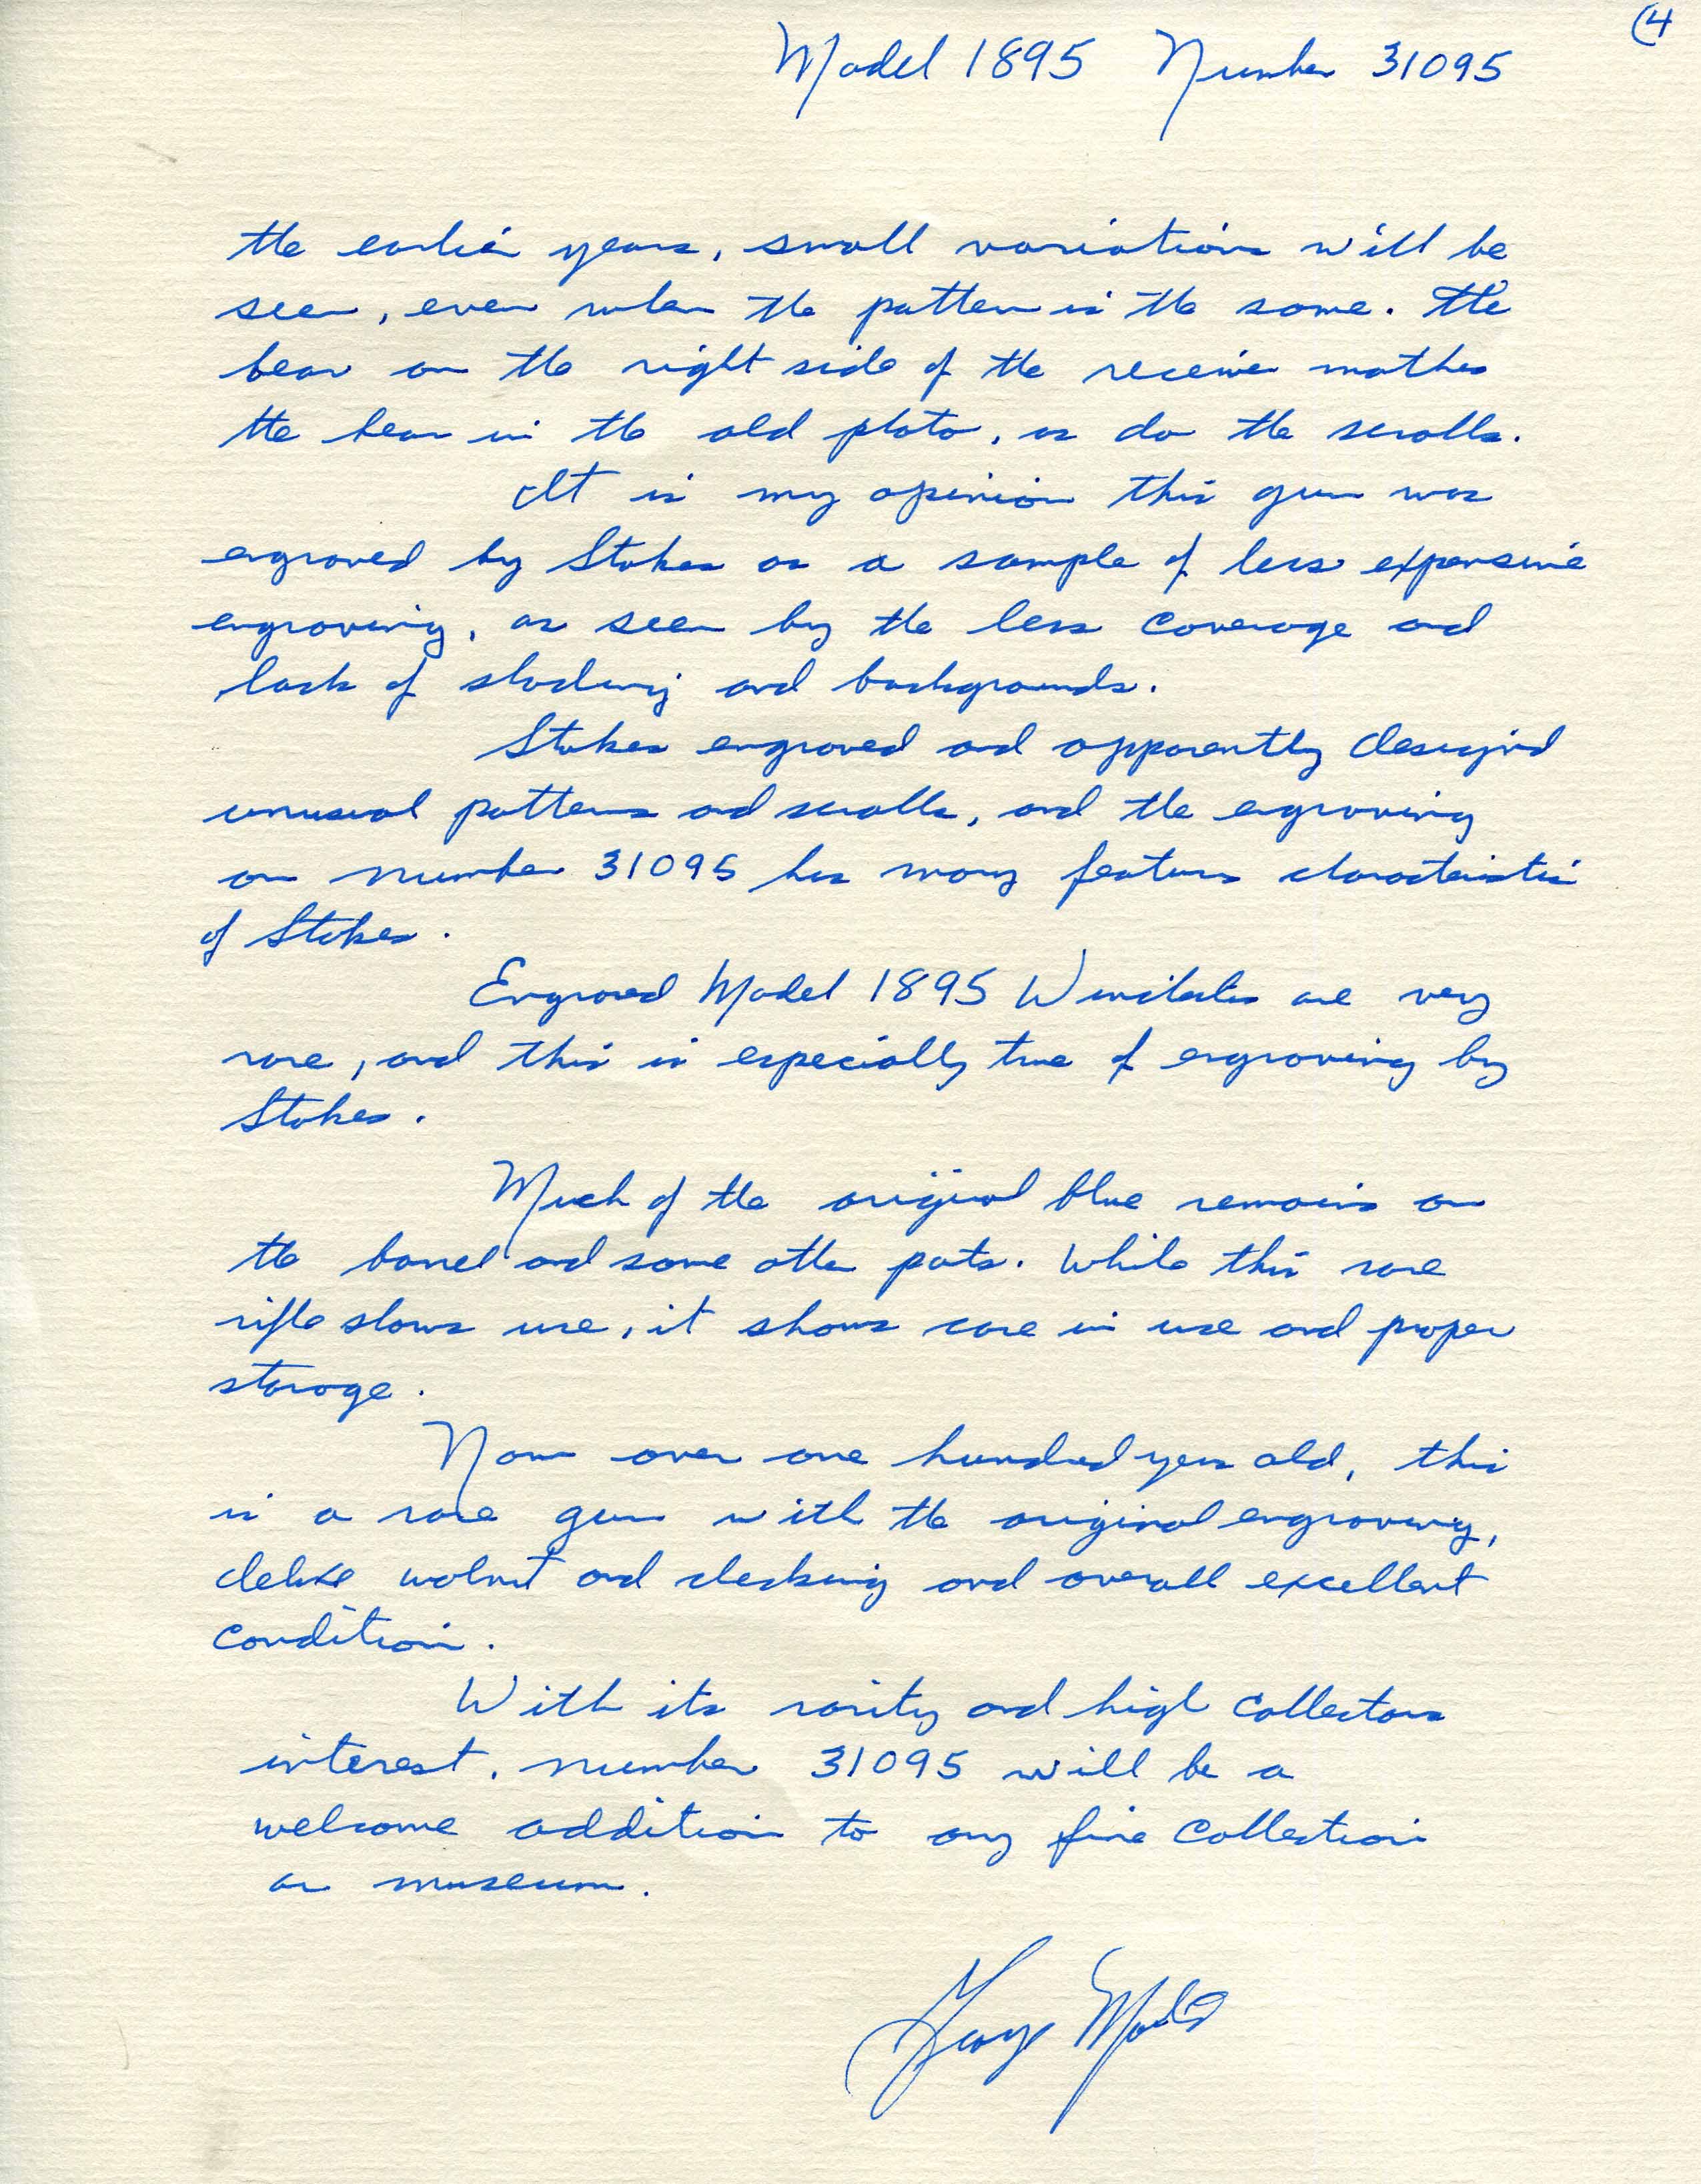 (4
Model 1895 Number 31095
the earlier years, small variations will be
seen, even when the pattern is the same. The
bear on the right side of the receiver matches
the bear in the old photo, as do the scrolls.
It is my opinion this gun was
engraved by Stokes as a sample of less expensive
engraving, as seen by the less coverage and
lack of shading and backgrounds.
Stokes engraved and apparently designed
unusual patterns and scrolls, and the engraving
on number 31095 has many features characteristic
of Stokes.
Engraved Model 1895 Winchesters are very
rare, and this is especially true of engraving by
Stokes.
Much of the original blue remains on
the barrel and some other parts. While this rare
rifle shows use, it shows care in use and proper
storage.
Now over one hundred years old, this
is a rare gun with the original engraving,
deluxe walnut and checking and overall excellent
condition.
With its rarity and high collectors
interest, number 31095 will be a
welcome addition to any fine collection
or museum.
George Madis